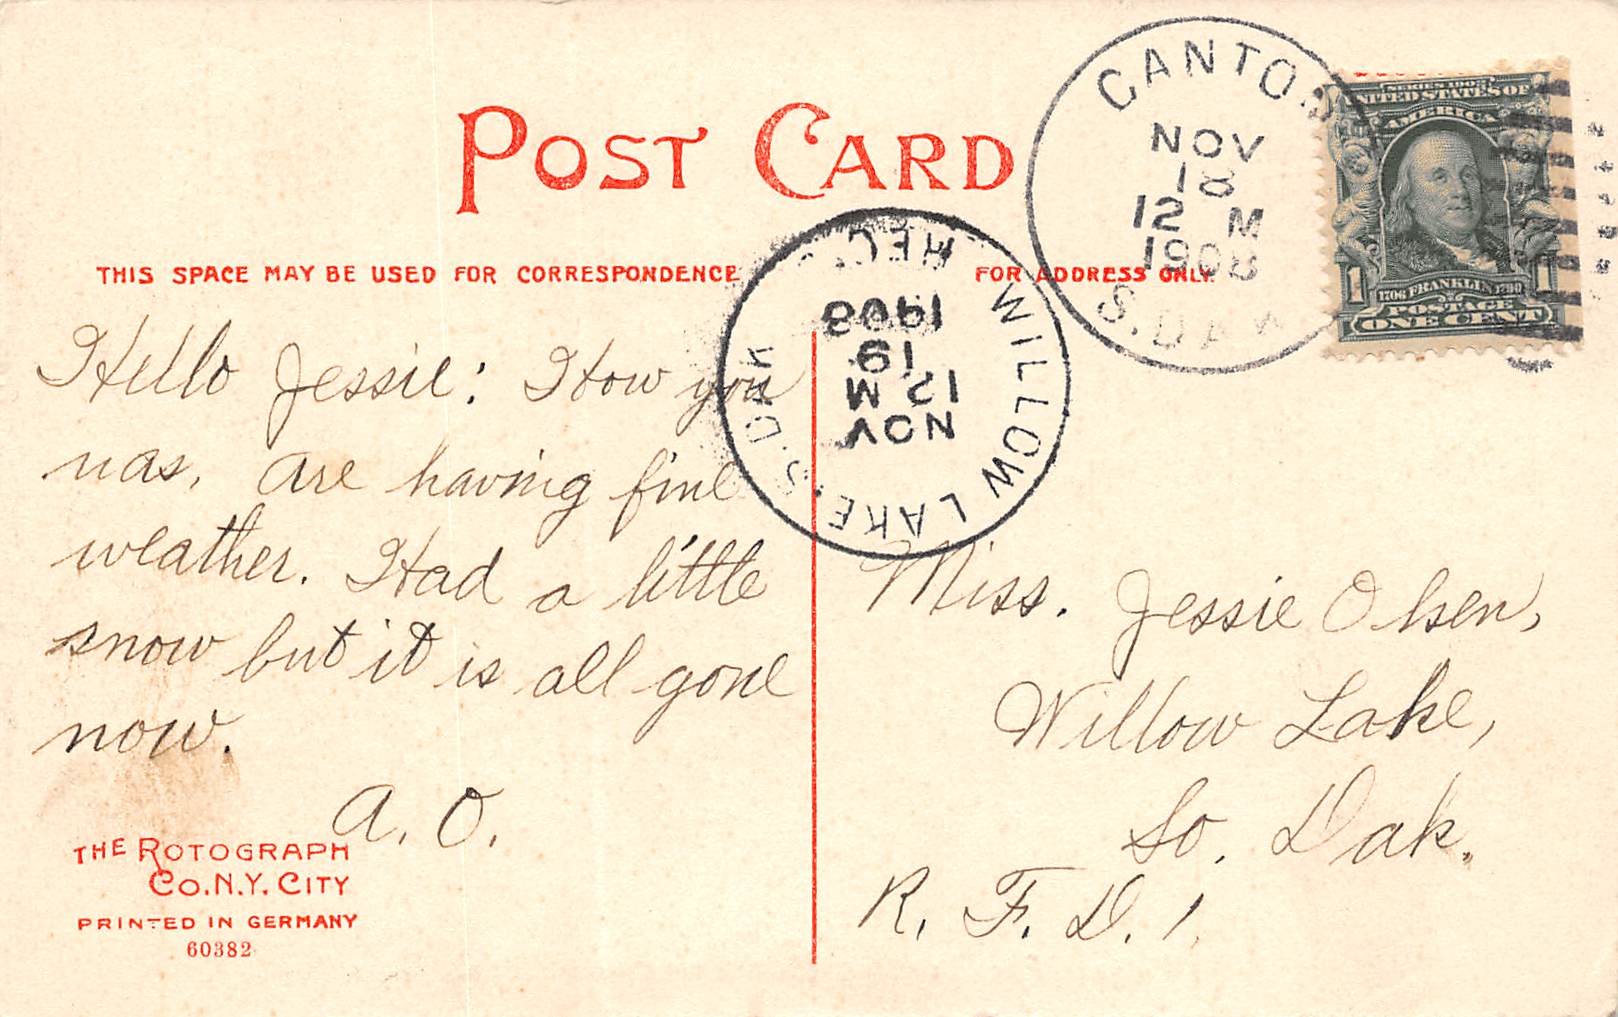 POST CARD
THIS SPACE MAY BE USED FOR CORRESPONDENCE
FOR ADDRESS ONLY.
CANTON
NOV
18
12 M
1908
S. DAK
SERIES 1902
UNITED STATES OF
AMERICA
1 1
1706 FRANKLIN 1790
POSTAGE
ONE CENT
WILLOW LAKE, S. DAK
NOV
12 M
19
1908
REC'D
Hello Jessie: How you
was, are having fine
weather. Had a little
snow but it is all gone
now.
A. O.
Miss. Jessie Olsen,
Willow Lake,
So. Dak.
R. F. D. 1
THE ROTOGRAPH
CO. N.Y. CITY
PRINTED IN GERMANY
60382